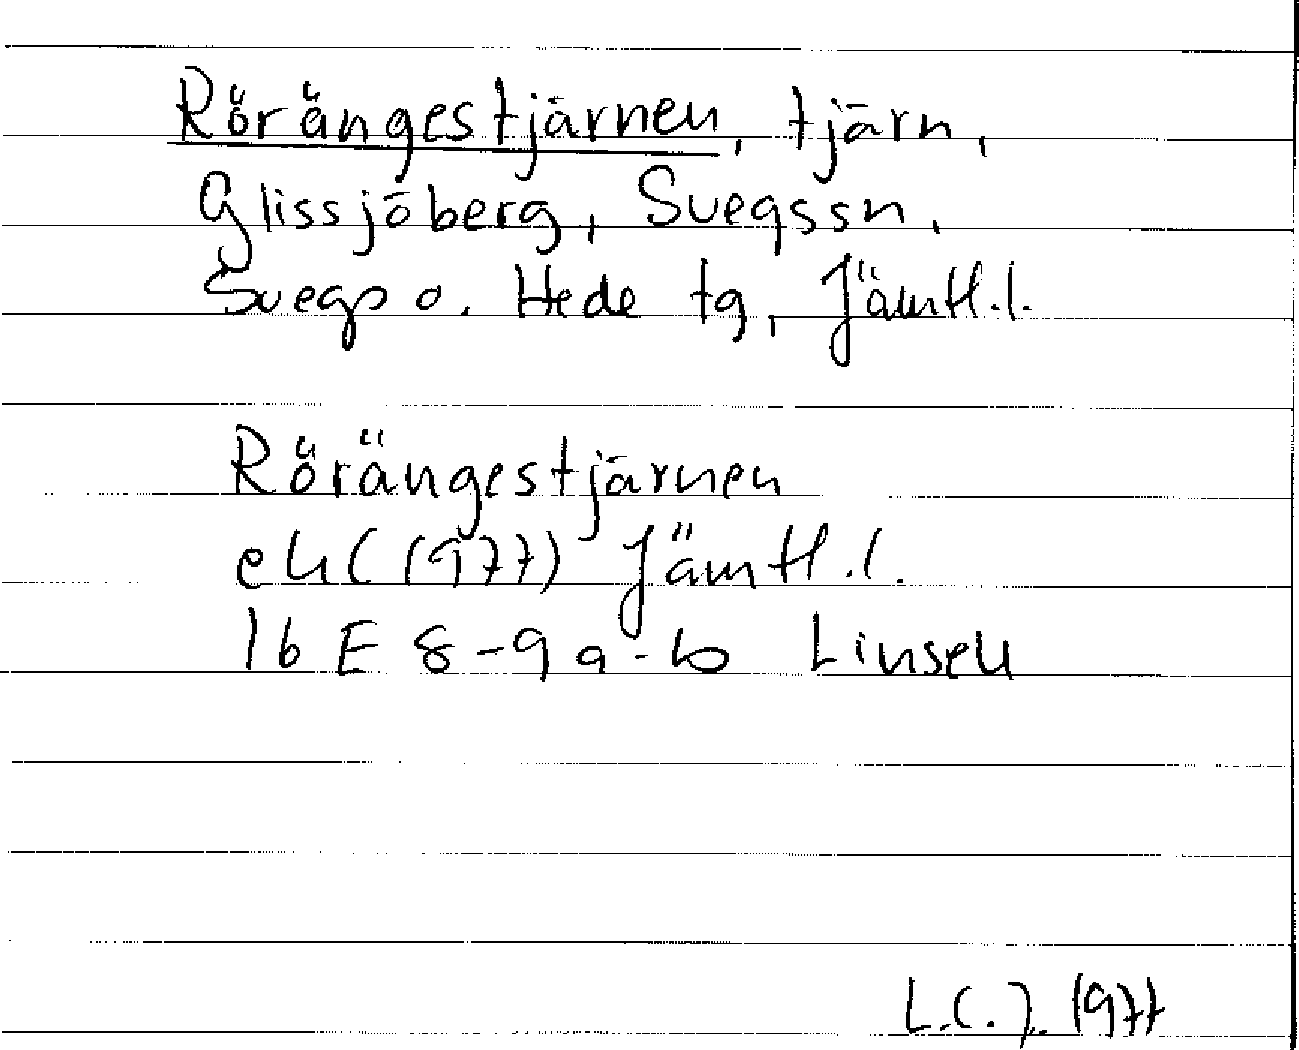 Rörängestjärnen, tjärn,
Glissjöberg, Svegs sn,
Svegs o. Hede tg, Jämtl.l.
Rörängestjärnen
ekC (1977) Jämtl.l.
16 E 8-9 a-b Linsell
L.C.J. 1977